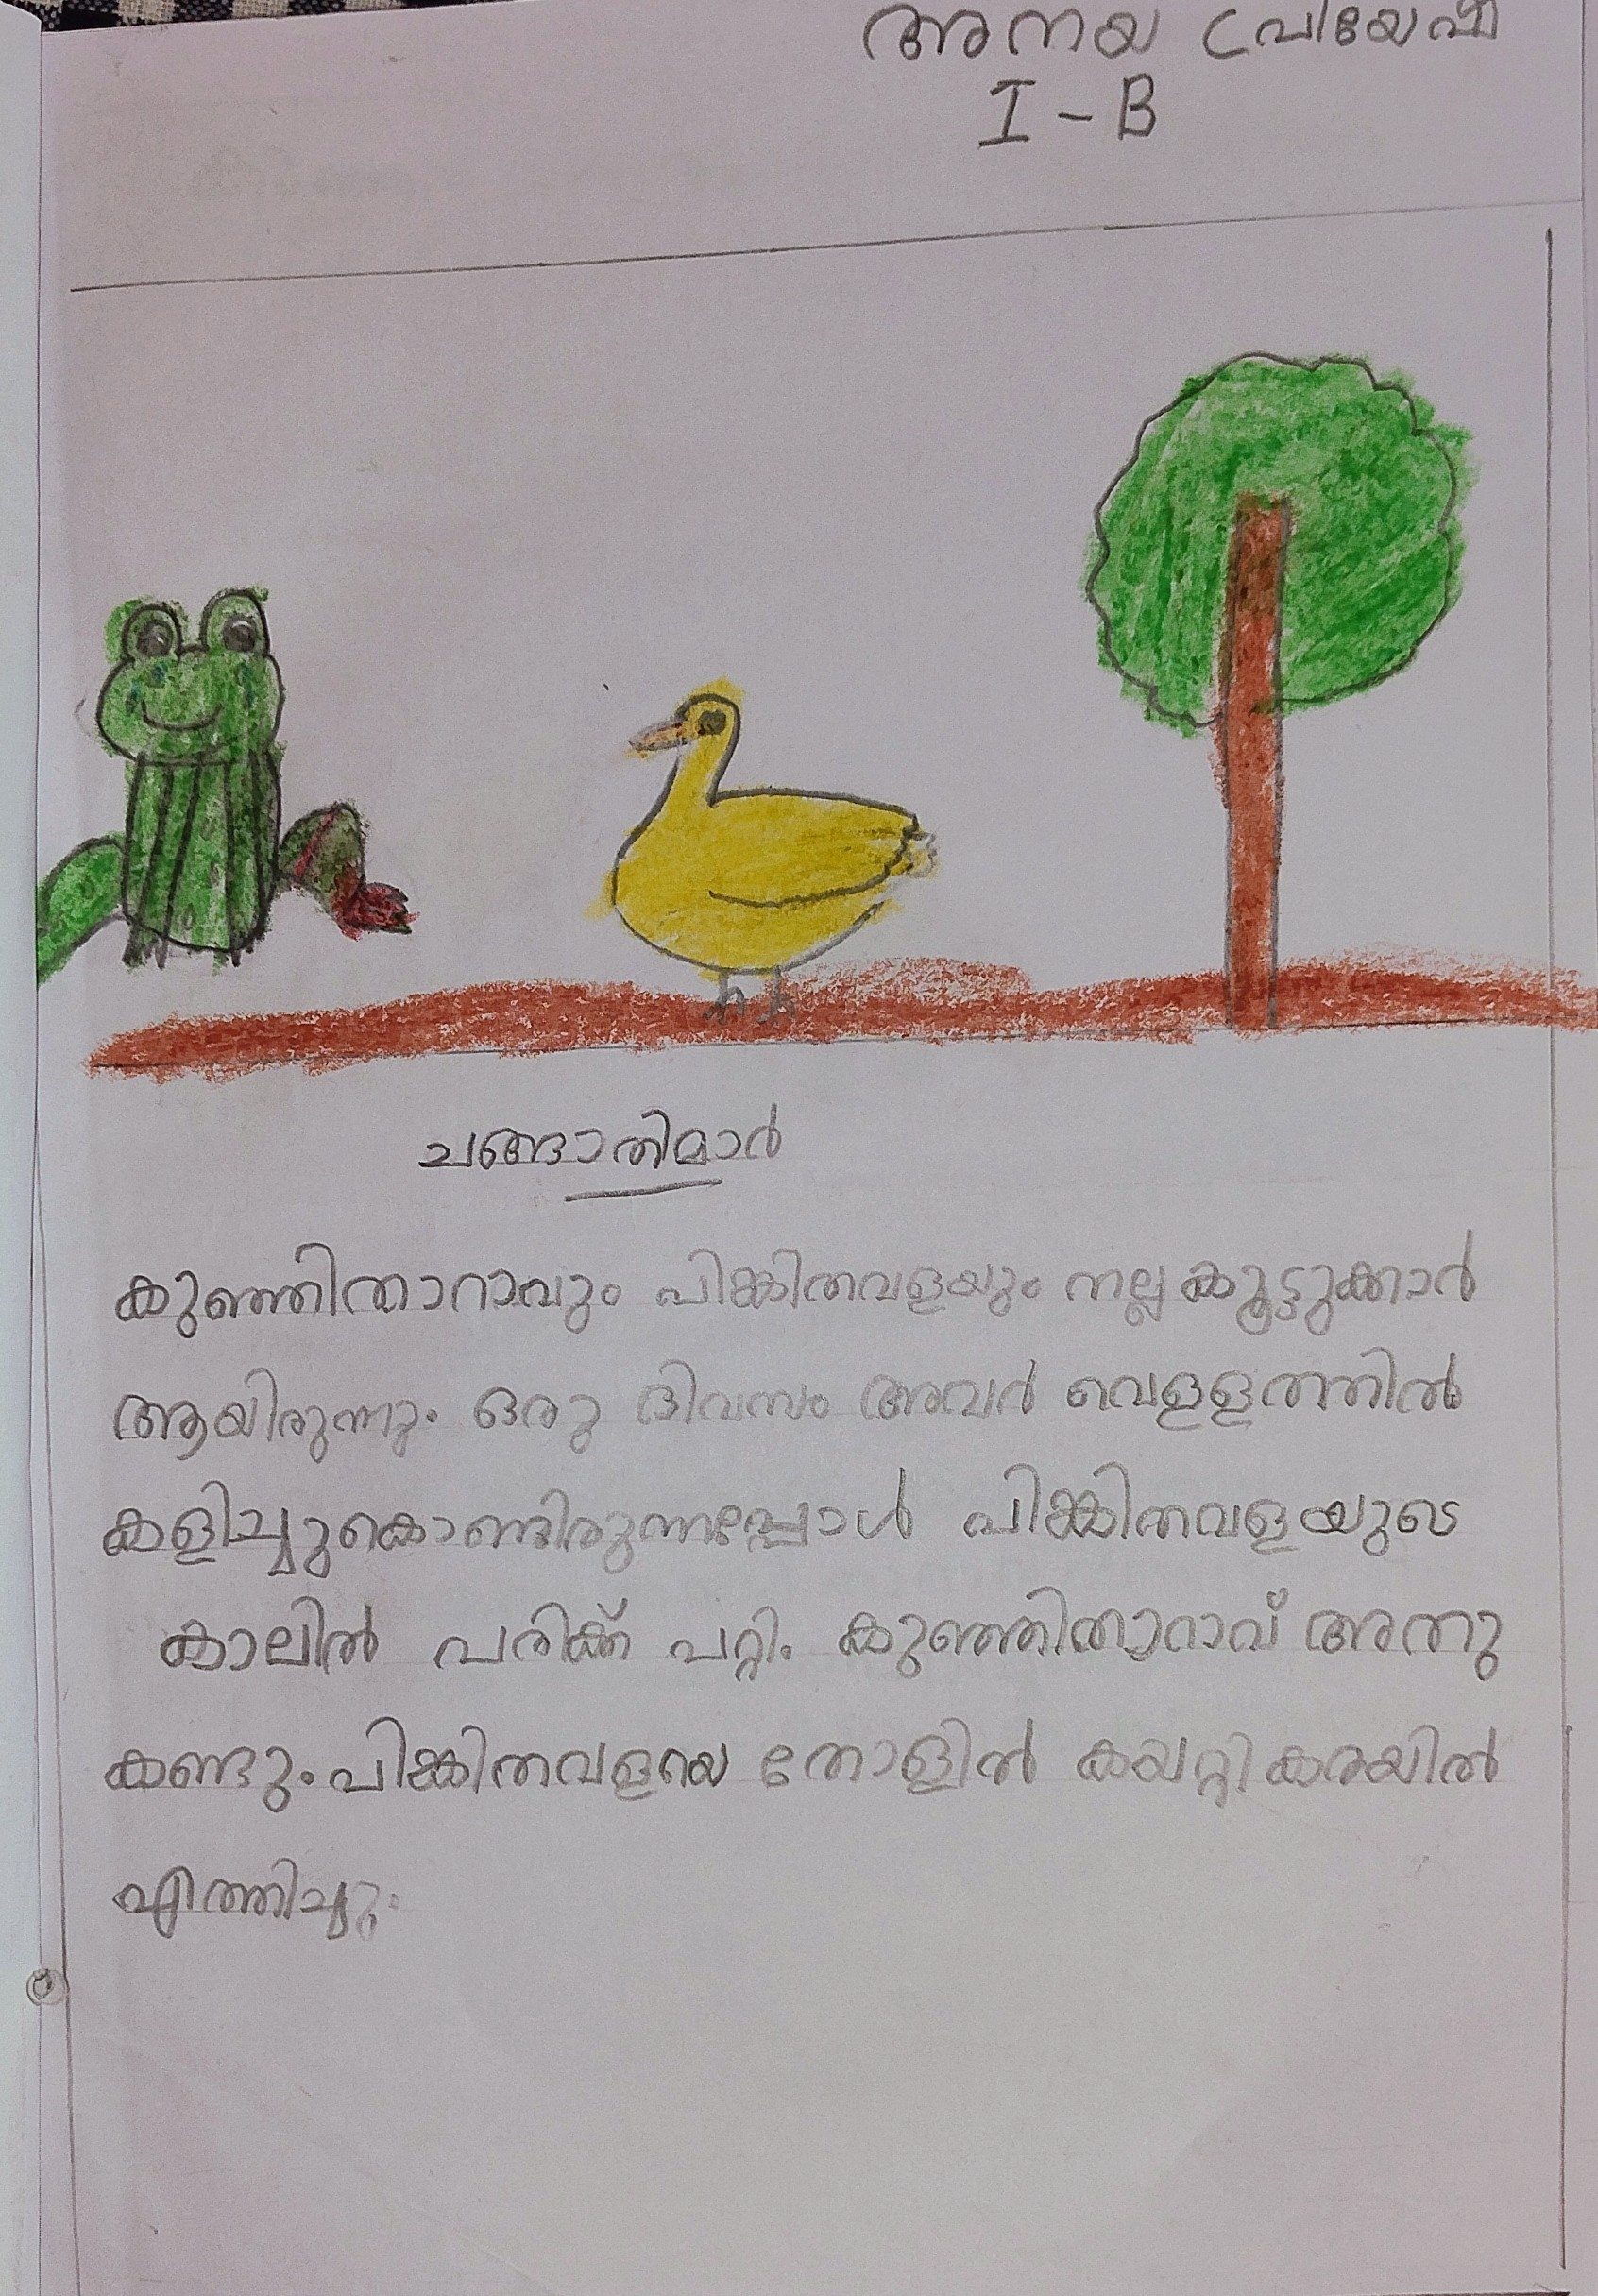 അനയ പ്രിയേഷ്
I - B
ചങ്ങാതിമാർ
കുഞ്ഞിതാറാവും പിങ്കിതവളയും നല്ല കൂട്ടുക്കാർ
ആയിരുന്നു. ഒരു ദിവസം അവർ വെള്ളത്തിൽ
കളിച്ചുകൊണ്ടിരുന്നപ്പോൾ പിങ്കിതവളയുടെ
കാലിൽ പരിക്ക് പറ്റി. കുഞ്ഞിതാറാവ് അതു
കണ്ടു. പിങ്കിതവളയെ തോളിൽ കയറ്റി കരയിൽ
എത്തിച്ചു.